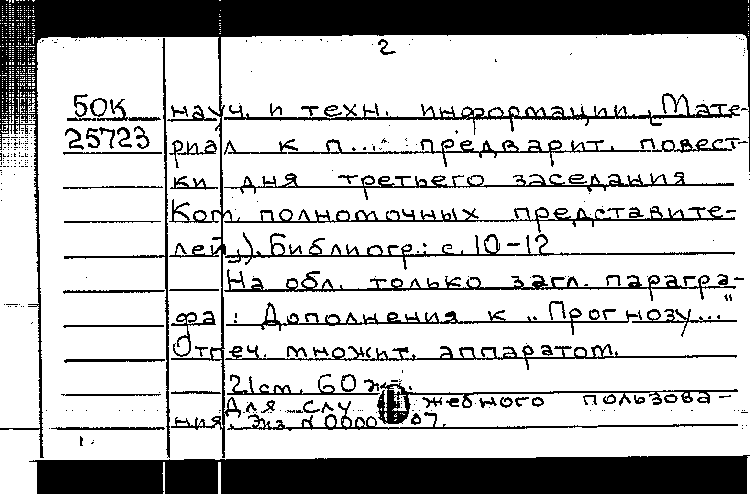 2
50К науч. и техн. информации. [Мате-
25723 риал к п... предварит. повест-
ки дня третьего заседания
Ком. полномочных представите-
лей]). Библиогр.: с. 10-12
На обл. только загл. парагра-
фа: Дополнения к „Прогнозу..."
Отпеч. множит. аппаратом.
21 см. 60 экз.
Для служебного пользова-
ния. Экз. №
1.